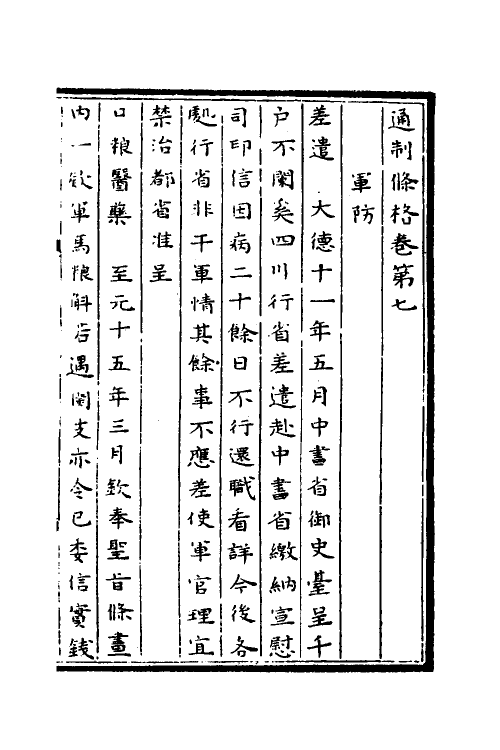 通制條格卷第七
軍防
差遣　大德十一年五月中書省御史臺呈千
户不闌奚四川行省差遣赴中書省繳納宣慰
司印信因病二十餘日不行還職看詳今後各
處行省非干軍情其餘事不應差使軍官理宜
禁治都省准呈
口粮醫藥　至元十五年三月欽奉聖旨條畫
内一欵軍馬粮斛若遇闕支亦令已委信實錢